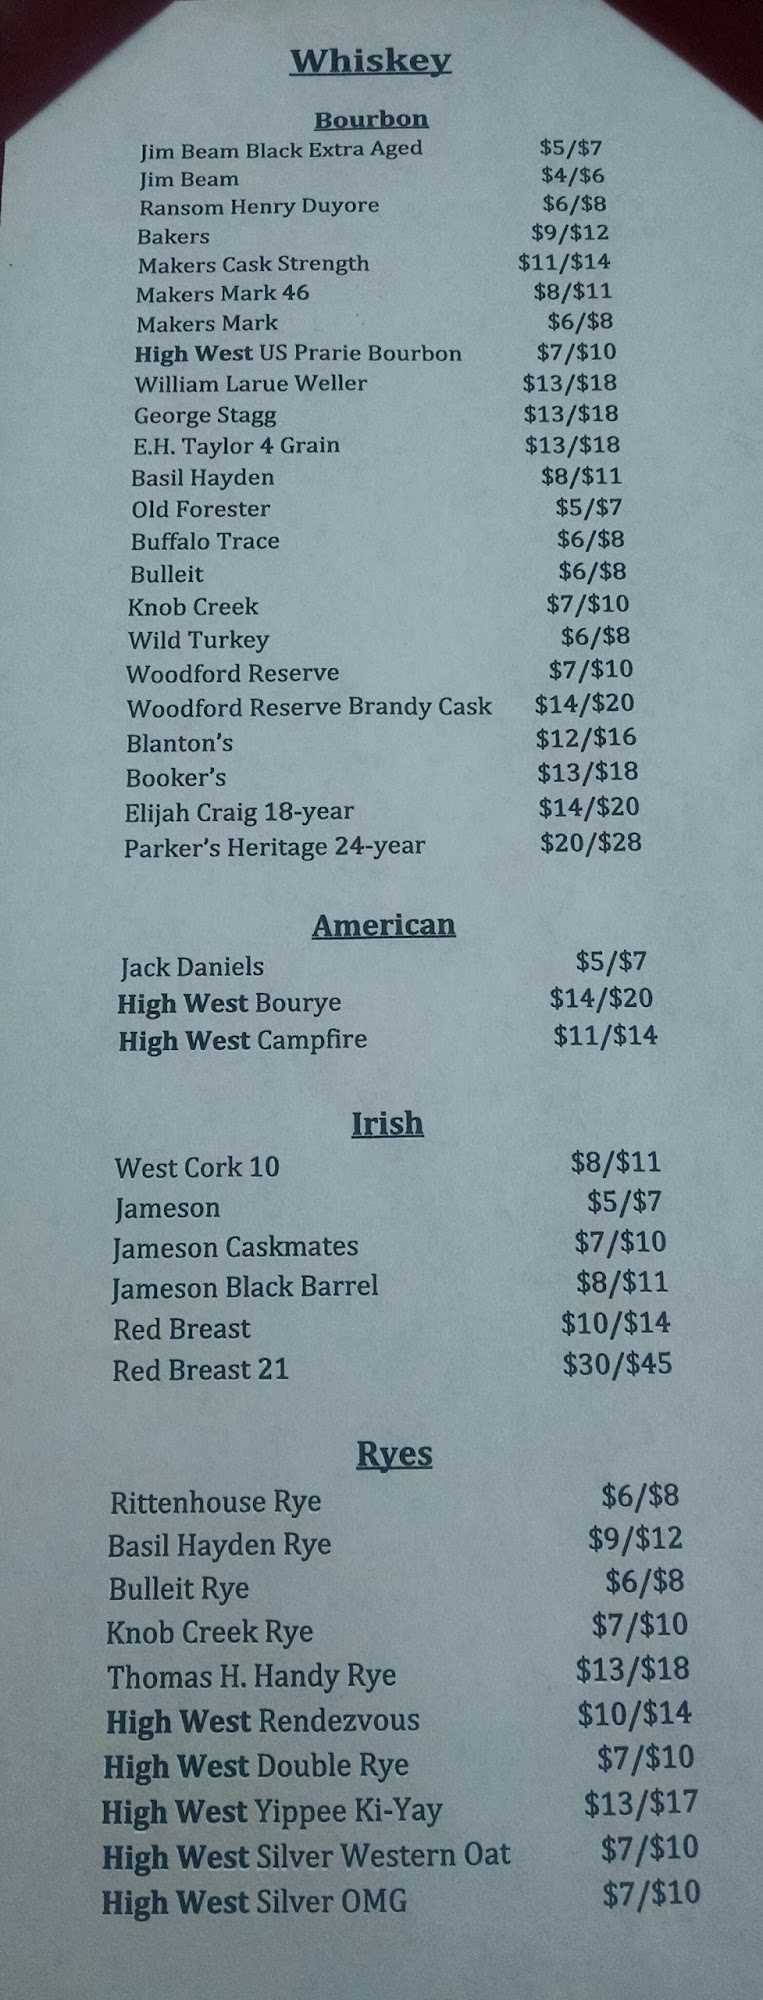 Whiskey
Bourbon
Jim Beam Black Extra Aged $5/$7
Jim Beam $4/$6
Ransom Henry Duyore $6/$8
Bakers $9/$12
Makers Cask Strength $11/$14
Makers Mark 46 $8/$11
Makers Mark $6/$8
High West US Prarie Bourbon $7/$10
William Larue Weller $13/$18
George Stagg $13/$18
E.H. Taylor 4 Grain $13/$18
Basil Hayden $8/$11
Old Forester $5/$7
Buffalo Trace $6/$8
Bulleit $6/$8
Knob Creek $7/$10
Wild Turkey $6/$8
Woodford Reserve $7/$10
Woodford Reserve Brandy Cask $14/$20
Blanton's $12/$16
Booker's $13/$18
Elijah Craig 18-year $14/$20
Parker's Heritage 24-year $20/$28
American
Jack Daniels $5/$7
High West Bourye $14/$20
High West Campfire $11/$14
Irish
West Cork 10 $8/$11
Jameson $5/$7
Jameson Caskmates $7/$10
Jameson Black Barrel $8/$11
Red Breast $10/$14
Red Breast 21 $30/$45
Ryes
Rittenhouse Rye $6/$8
Basil Hayden Rye $9/$12
Bulleit Rye $6/$8
Knob Creek Rye $7/$10
Thomas H. Handy Rye $13/$18
High West Rendezvous $10/$14
High West Double Rye $7/$10
High West Yippee Ki-Yay $13/$17
High West Silver Western Oat $7/$10
High West Silver OMG $7/$10